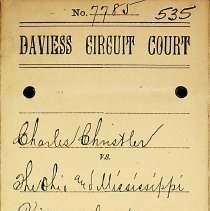 No. 7785 535
DAVIESS CIRCUIT COURT
Charles Christler
vs.
The Ohio and Mississippi